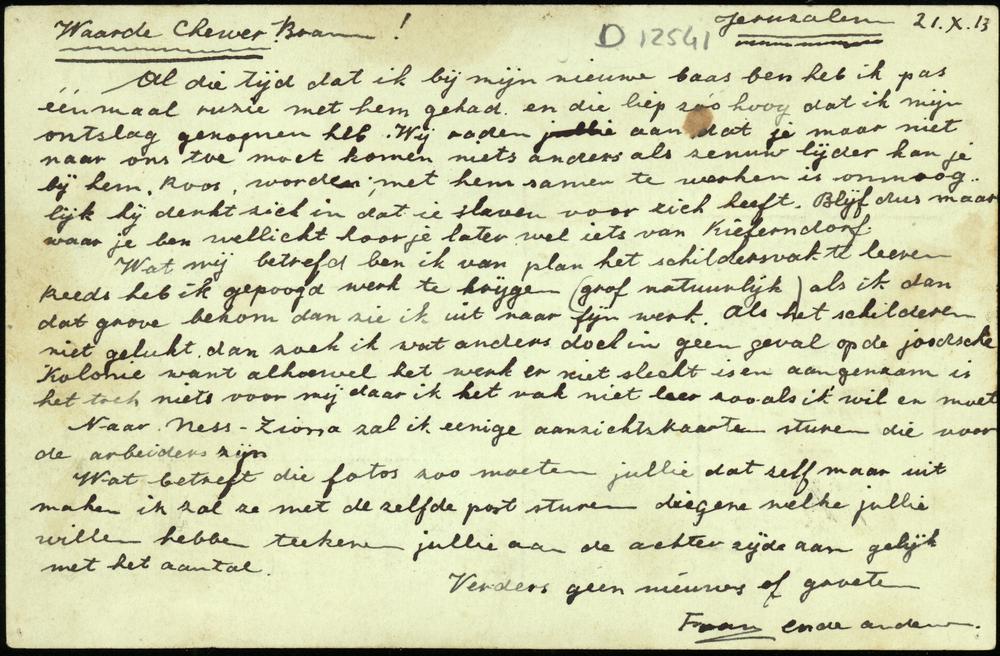 Waarde Chewer Bram !
Jeruzalem 21.X.13
D 12541
Al die tijd dat ik bij mijn nieuwe baas ben heb ik pas
één maal ruzie met hem gehad. en die liep zóó hoog dat ik mijn
ontslag genomen heb. Wij raden jullie aan dat je maar niet
naar ons toe moet komen niets anders als zenuw lijder kan je
bij hem, Roos, worden, met hem samen te werken is onmoog-
lijk hij denkt zich in dat ie slaven voor zich heeft. Blijf dus maar
waar je ben wellicht hoor je later wel iets van Kieferndorf.
Wat mij betrefd ben ik van plan het schildersvak te leeren
Reeds heb ik gepoogd werk te krijgen (grof natuurlijk) als ik dan
dat grove bekom dan zie ik uit naar fijn werk. Als het schilderen
niet gelukt, dan zoek ik wat anders doch in geen geval op de joodsche
Kolonie want alhoewel het werk er niet slecht is en aangenaam is
het toch niets voor mij daar ik het vak niet leer zooals ik wil en moet
Naar Ness-Ziona zal ik eenige aanzichtskaarten sturen die voor
de arbeiders zijn
Wat betreft die fotos zoo moeten jullie dat zelf maar uit
maken ik zal ze met de zelfde post sturen diegene welke jullie
willen hebben teekenen jullie aan de achter zijde aan gelijk
met het aantal.
Verders geen nieuws of groete
en de anderen.